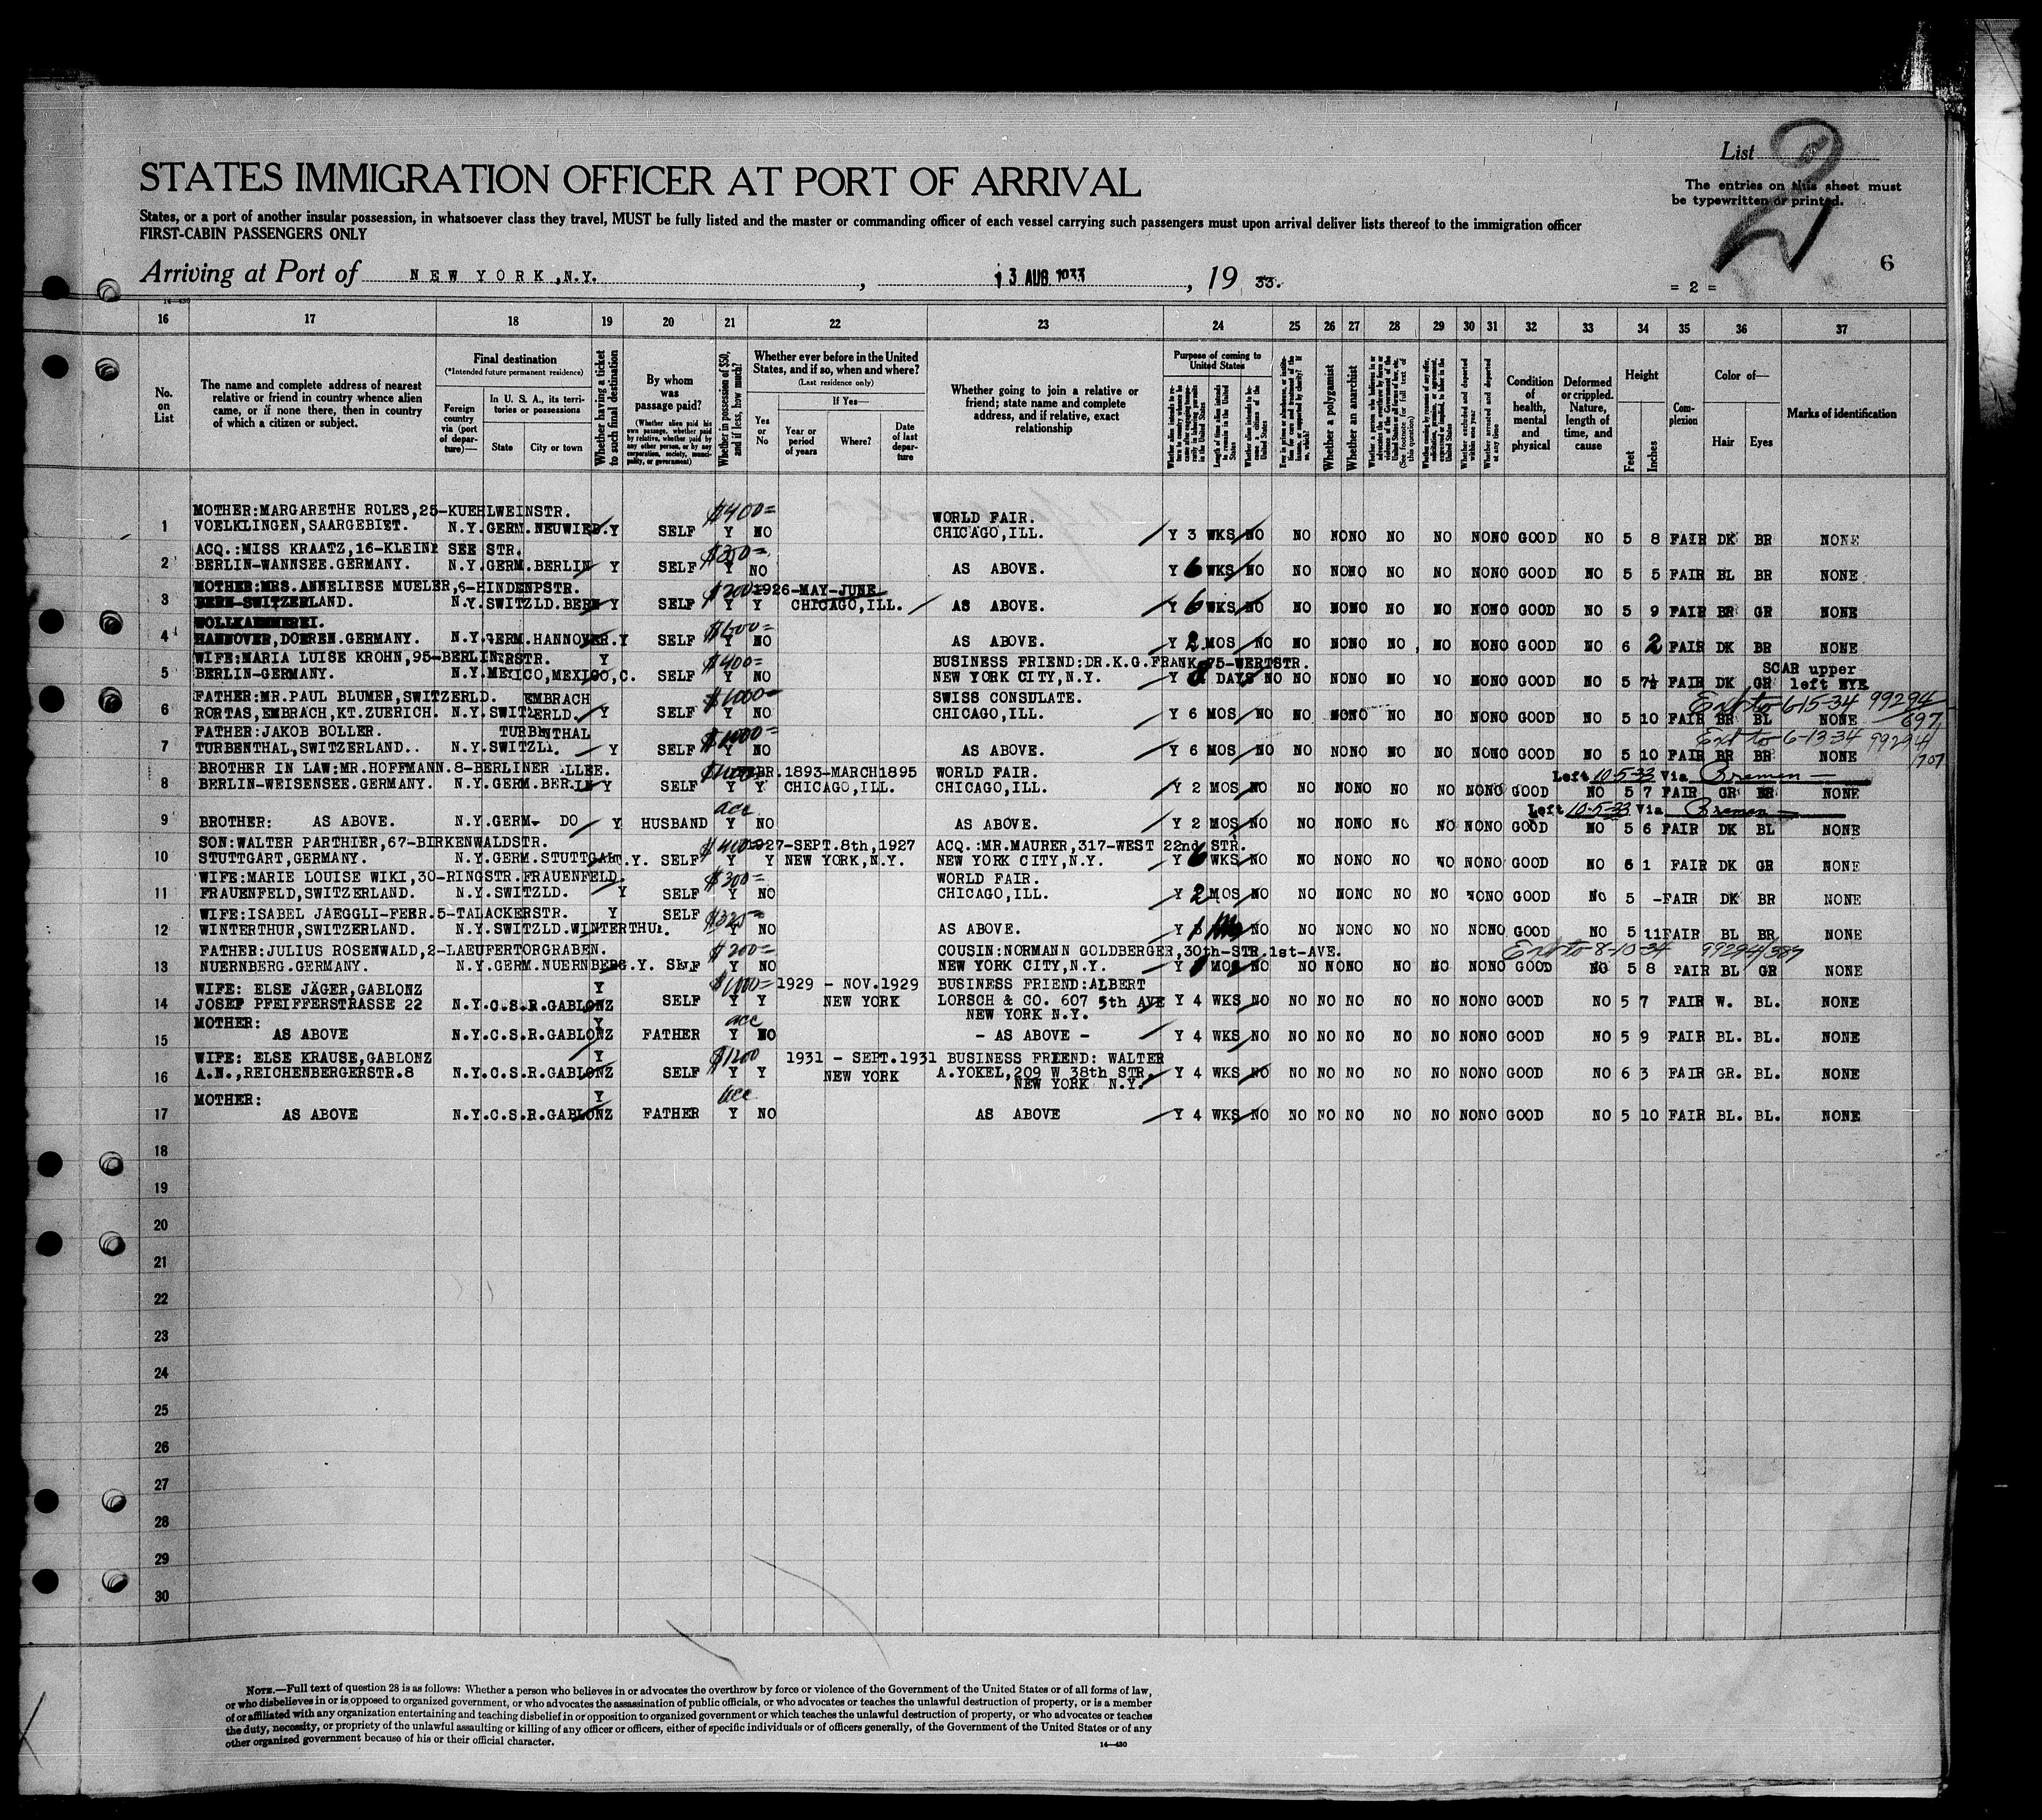 List 2
The entries on this sheet must
be typewritten or printed.
STATES IMMIGRATION OFFICER AT PORT OF ARRIVAL
States, or a port of another insular possession, in whatsoever class they travel, MUST be fully listed and the master or commanding officer of each vessel carrying such passengers must upon arrival deliver lists thereof to the immigration officer
FIRST-CABIN PASSENGERS ONLY
6
Arriving at Port of NEW YORK, N.Y. , 13 AUG 1933 , 19 33.
= 2 =
14—430
16 17 18 19 20 21 22 23 24 25 26 27 28 29 30 31 32 33 34 35 36 37
No. on List
The name and complete address of nearest relative or friend in country whence alien came, or if none there, then in country of which a citizen or subject.
Final destination
(*Intended future permanent residence)
Foreign country via (port of departure)—
In U. S. A., its territories or possessions
State
City or town
Whether having a ticket to such final destination
By whom was passage paid?
(Whether alien paid his own passage, whether paid by relative, whether paid by any other person, or by any corporation, society, municipality, or government)
Whether in possession of $50, and if less, how much?
Whether ever before in the United States, and if so, when and where?
(Last residence only)
Yes or No
If Yes—
Year or period of years
Where?
Date of last departure
Whether going to join a relative or friend; state name and complete address, and if relative, exact relationship
Purpose of coming to United States
Length of time alien intends to remain in the United States
Whether a polygamist
Whether an anarchist
Whether arrested and deported at any time
Condition of health, mental and physical
Deformed or crippled. Nature, length of time, and cause
Height
Feet
Inches
Complexion
Color of—
Hair
Eyes
Marks of identification
MOTHER:MARGARETHE ROLES,25-KUEHLWEINSTR. $400=
WORLD FAIR.
1 VOELKLINGEN,SAARGEBIET. N.Y.GERM.NEUWIED.Y SELF Y NO CHICAGO,ILL. Y 3 WKS NO NO NONO NO NO NONO GOOD NO 5 8 FAIR DK BR NONE
ACQ.:MISS KRAATZ,16-KLEINE SEE STR. $350=
2 BERLIN-WANNSEE.GERMANY. N.Y.GERM.BERLIN Y SELF Y NO AS ABOVE. Y 6 WKS NO NO NONO NO NO NONO GOOD NO 5 5 FAIR BL BR NONE
MOTHER:MRS.ANNELIESE MUELER,6-HINDENPSTR. $200= 1926-MAY-JUNE
3 BERN-SWITZERLAND. N.Y.SWITZLD.BERN Y SELF Y Y CHICAGO,ILL. AS ABOVE. Y 6 WKS NO NO NONO NO NO NONO GOOD NO 5 9 FAIR BR GR NONE
WOLLKAEMMEREI.
4 HANNOVER,DOEREN.GERMANY. N.Y.GERM.HANNOVER.Y SELF Y NO AS ABOVE. Y 2 MOS NO NO NONO NO NO NONO GOOD NO 6 2 FAIR DK BR NONE
WIFE:MARIA LUISE KROHN,95-BERLINERSTR. Y $400= BUSINESS FRIEND:DR.K.G.FRANK 75-WERTSTR. SCAR upper
5 BERLIN-GERMANY. N.Y.MEXICO,MEXICO,C. SELF Y NO NEW YORK CITY,N.Y. Y DAYS NO NO NONO NO NO NONO GOOD NO 5 7½ FAIR DK GR left EYE
FATHER:MR.PAUL BLUMER,SWITZERLD. EMBRACH $1000= SWISS CONSULATE. Ext to 6-15-34 99294/697
6 RORTAS,EMBRACH,KT.ZUERICH. N.Y.SWITZERLD. Y SELF Y NO CHICAGO,ILL. Y 6 MOS NO NO NONO NO NO NONO GOOD NO 5 10 FAIR BR BL NONE
FATHER:JAKOB BOLLER. TURBENTHAL $1000= Ext to 6-13-34 99294/707
7 TURBENTHAL,SWITZERLAND.. N.Y.SWITZL. Y SELF Y NO AS ABOVE. Y 6 MOS NO NO NONO NO NO NONO GOOD NO 5 10 FAIR BR BR NONE
BROTHER IN LAW:MR.HOFFMANN.8-BERLINER ALLEE. 1893-MARCH1895 WORLD FAIR. Left 10-5-33 Via Bremen
8 BERLIN-WEISENSEE.GERMANY. N.Y.GERM.BERLIN Y SELF Y Y CHICAGO,ILL. CHICAGO,ILL. Y 2 MOS NO NO NONO NO NO NONO GOOD NO 5 7 FAIR GR BR NONE
acc Left 10-5-33 Via Bremen
9 BROTHER: AS ABOVE. N.Y.GERM- DO Y HUSBAND Y NO AS ABOVE. Y 2 MOS NO NO NONO NO NO NONO GOOD NO 5 6 FAIR DK BL NONE
SON:WALTER PARTHIER,67-BIRKENWALDSTR. $400= 1927-SEPT.8th,1927 ACQ.:MR.MAURER,317-WEST 22nd STR.
10 STUTTGART,GERMANY. N.Y.GERM.STUTTGART.Y. SELF Y Y NEW YORK,N.Y. NEW YORK CITY,N.Y. Y 6 WKS NO NO NONO NO NO NONO GOOD NO 6 1 FAIR DK GR NONE
WIFE:MARIE LOUISE WIKI,30-RINGSTR.FRAUENFELD. $300= WORLD FAIR.
11 FRAUENFELD,SWITZERLAND. N.Y.SWITZLD. Y SELF Y NO CHICAGO,ILL. Y 2 MOS NO NO NONO NO NO NONO GOOD NO 5 - FAIR DK BR NONE
WIFE:ISABEL JAEGGLI-FEER.5-TALACKERSTR. Y SELF $325=
12 WINTERTHUR,SWITZERLAND. N.Y.SWITZLD.WINTERTHUR. Y NO AS ABOVE. Y NO NO NONO NO NO NONO GOOD NO 5 11 FAIR BL BR NONE
FATHER:JULIUS ROSENWALD,2-LAEUFERTORGRABEN. $200= COUSIN:NORMANN GOLDBERGER,30th-STR.1st-AVE. Ext to 8-10-34 99294/387
13 NUERNBERG.GERMANY. N.Y.GERM.NUERNBERG.Y. SELF Y NO NEW YORK CITY,N.Y. Y MOS NO NO NONO NO NO NONO GOOD NO 5 8 FAIR BL GR NONE
WIFE: ELSE JÄGER,GABLONZ Y $1000= 1929 - NOV.1929 BUSINESS FRIEND:ALBERT
14 JOSEF PFEIFFERSTRASSE 22 N.Y.C.S.R.GABLONZ SELF Y Y NEW YORK LORSCH & CO. 607 5th AVE Y 4 WKS NO NO NO NO NO NO NONO GOOD NO 5 7 FAIR W. BL. NONE
NEW YORK N.Y.
MOTHER: Y acc
15 AS ABOVE N.Y.C.S.R.GABLONZ FATHER Y NO - AS ABOVE - Y 4 WKS NO NO NO NO NO NO NONO GOOD NO 5 9 FAIR BL. BL. NONE
WIFE: ELSE KRAUSE,GABLONZ Y $1200 1931 - SEPT.1931 BUSINESS FRIEND: WALTER
16 A.N.,REICHENBERGERSTR.8 N.Y.C.S.R.GABLONZ SELF Y Y NEW YORK A.YOKEL,209 W 38th STR. Y 4 WKS NO NO NO NO NO NO NONO GOOD NO 6 3 FAIR GR. BL. NONE
NEW YORK N.Y.
MOTHER: Y acc
17 AS ABOVE N.Y.C.S.R.GABLONZ FATHER Y NO AS ABOVE Y 4 WKS NO NO NO NO NO NO NONO GOOD NO 5 10 FAIR BL. BL. NONE
18
19
20
21
22
23
24
25
26
27
28
29
30
NOTE.—Full text of question 28 is as follows: Whether a person who believes in or advocates the overthrow by force or violence of the Government of the United States or of all forms of law,
or who disbelieves in or is opposed to organized government, or who advocates the assassination of public officials, or who advocates or teaches the unlawful destruction of property, or is a member
of or affiliated with any organization entertaining and teaching disbelief in or opposition to organized government or which teaches the unlawful destruction of property, or who advocates or teaches
the duty, necessity, or propriety of the unlawful assaulting or killing of any officer or officers, either of specific individuals or of officers generally, of the Government of the United States or of any
other organized government because of his or their official character.
14—430